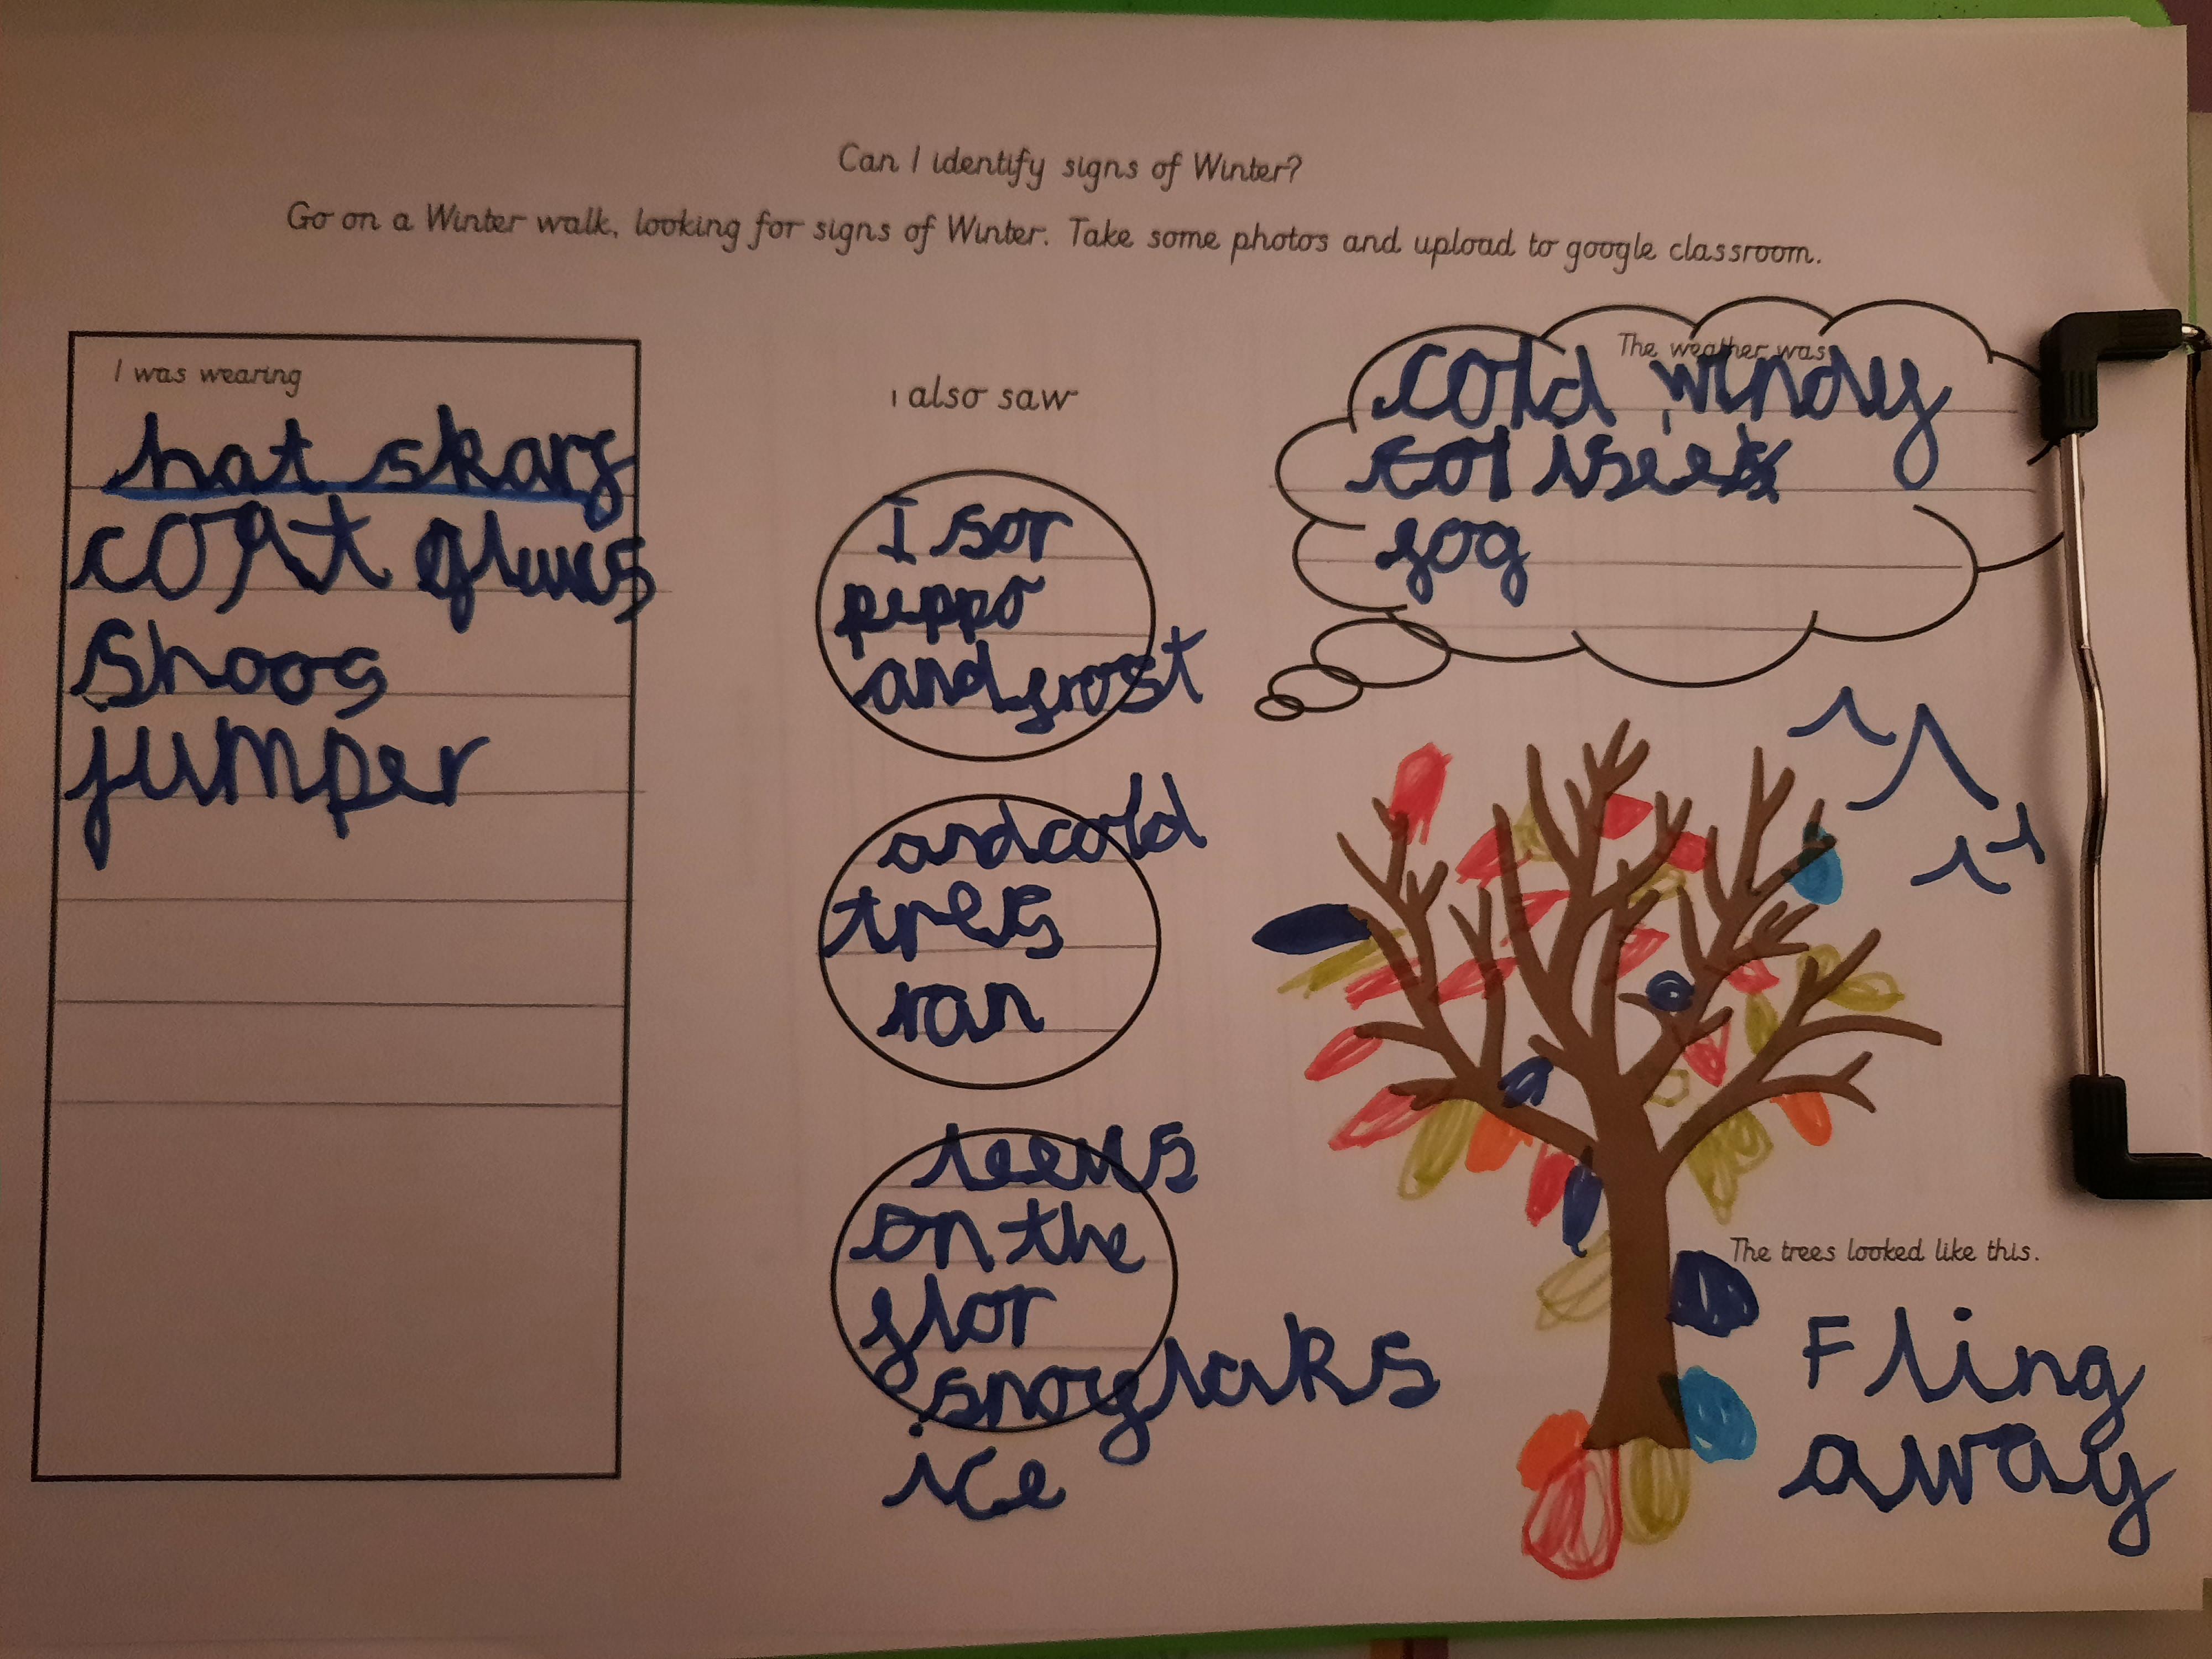 Can I identify signs of Winter?
Go on a Winter walk, looking for signs of Winter. Take some photos and upload to google classroom.
I was wearing
hat skarf
coat gluvs
shoos
jumper
I also saw
I sor
peppo
and frost
and cold
trees
ran
leevs
on the
flor
snoyflaks
ice
The weather was
cold windy
fog
The trees looked like this.
Fling
away